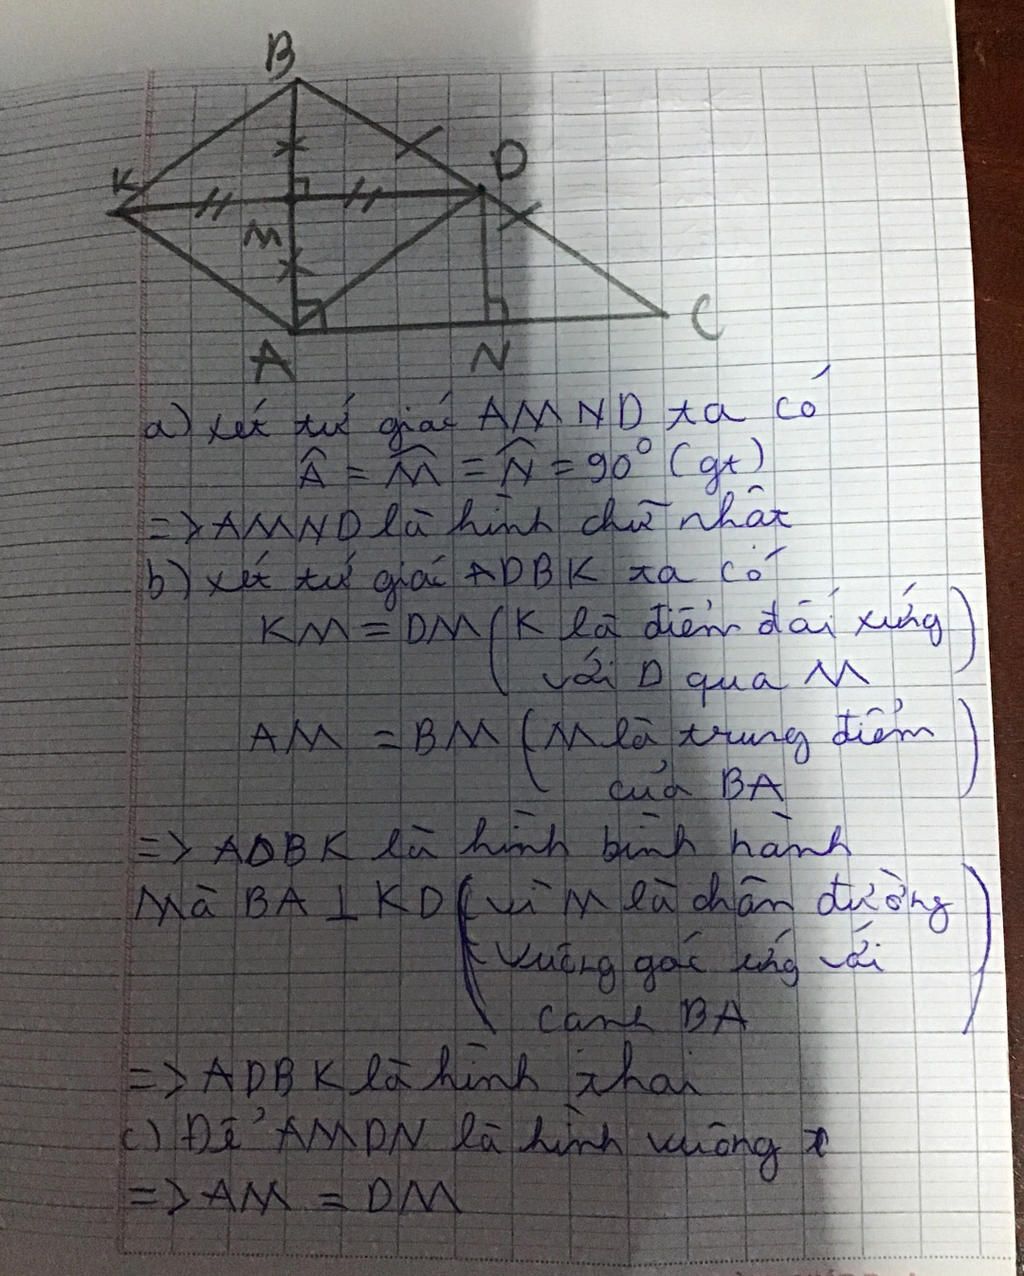 B
K
D
M
A
N
C
a) xét tứ giác AMND ta có
Â = M̂ = N̂ = 90° (gt)
=> AMND là hình chữ nhật
b) xét tứ giác ADBK ta có
KM = DM (K là điểm đối xứng
với D qua M)
AM = BM (M là trung điểm
của BA)
=> ADBK là hình bình hành
Mà BA ⊥ KD (vì M là chân đường
vuông góc ứng với
cạnh BA)
=> ADBK là hình thoi
c) Để AMDN là hình vuông
=> AM = DM